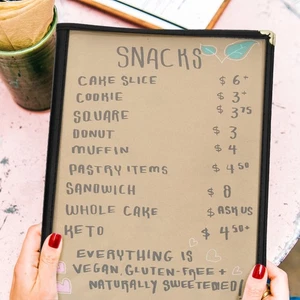 SNACKS
CAKE SLICE $6+
COOKIE $3+
SQUARE $3.75
DONUT $3
MUFFIN $4
PASTRY ITEMS $4.50
SANDWICH $8
WHOLE CAKE $ASK US
KETO $4.50+
EVERYTHING IS
VEGAN, GLUTEN-FREE +
NATURALLY SWEETENED!